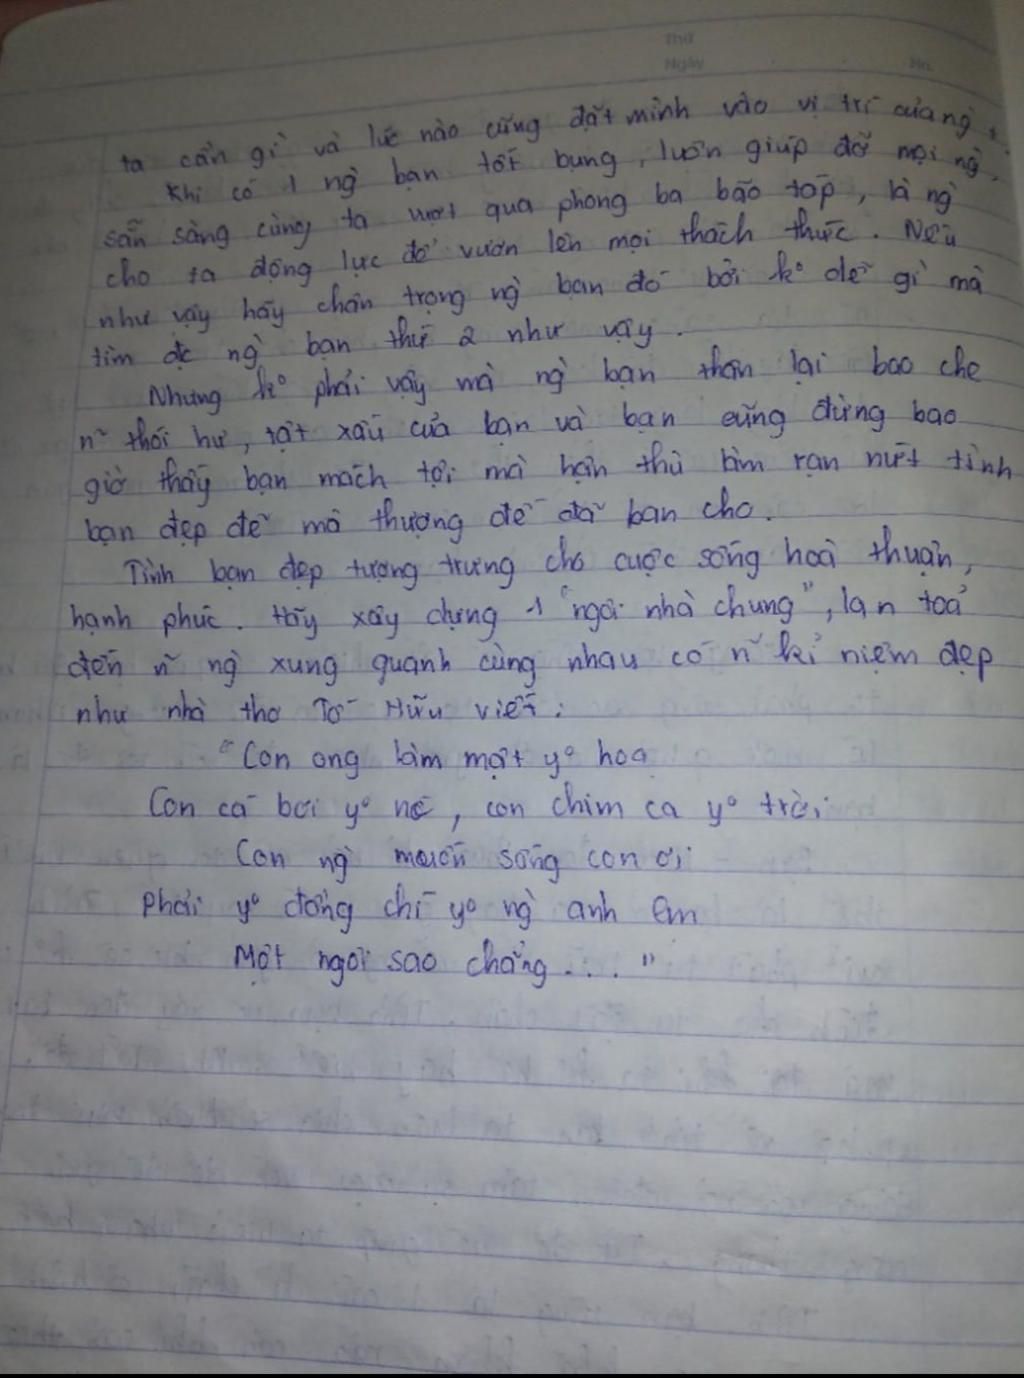 Thứ
Ngày No.
ta cần gì và lúc nào cũng đặt mình vào vị trí của ng`
Khi có 1 ng` bạn tốt bụng, luôn giúp đỡ mọi ng`,
sẵn sàng cùng ta vượt qua phong ba bão táp, là ng`
cho ta động lực để vươn lên mọi thách thức. Nếu
như vậy hãy chân trọng ng` bạn đó bởi k° dễ gì mà
tìm đc ng` bạn thứ 2 như vậy.
Nhưng k° phải vậy mà ng` bạn thân lại bao che
n~ thói hư, tật xấu của bạn và bạn cũng đừng bao
giờ thấy bạn mách tội mà hận thù làm rạn nứt tình
bạn đẹp đẽ mà thượng đế đã ban cho.
Tình bạn đẹp tượng trưng cho cuộc sống hoà thuận,
hạnh phúc. Hãy xây dựng 1 "ngôi nhà chung", lan toả
đến n~ ng` xung quanh cùng nhau có n~ kỉ niệm đẹp
như nhà thơ Tố Hữu viết:
"Con ong làm mật y° hoa
Con cá bơi y° nc, con chim ca y° trời
Con ng` muốn sống con ơi
Phải y° đồng chí y° ng` anh em
Một ngôi sao chẳng..."